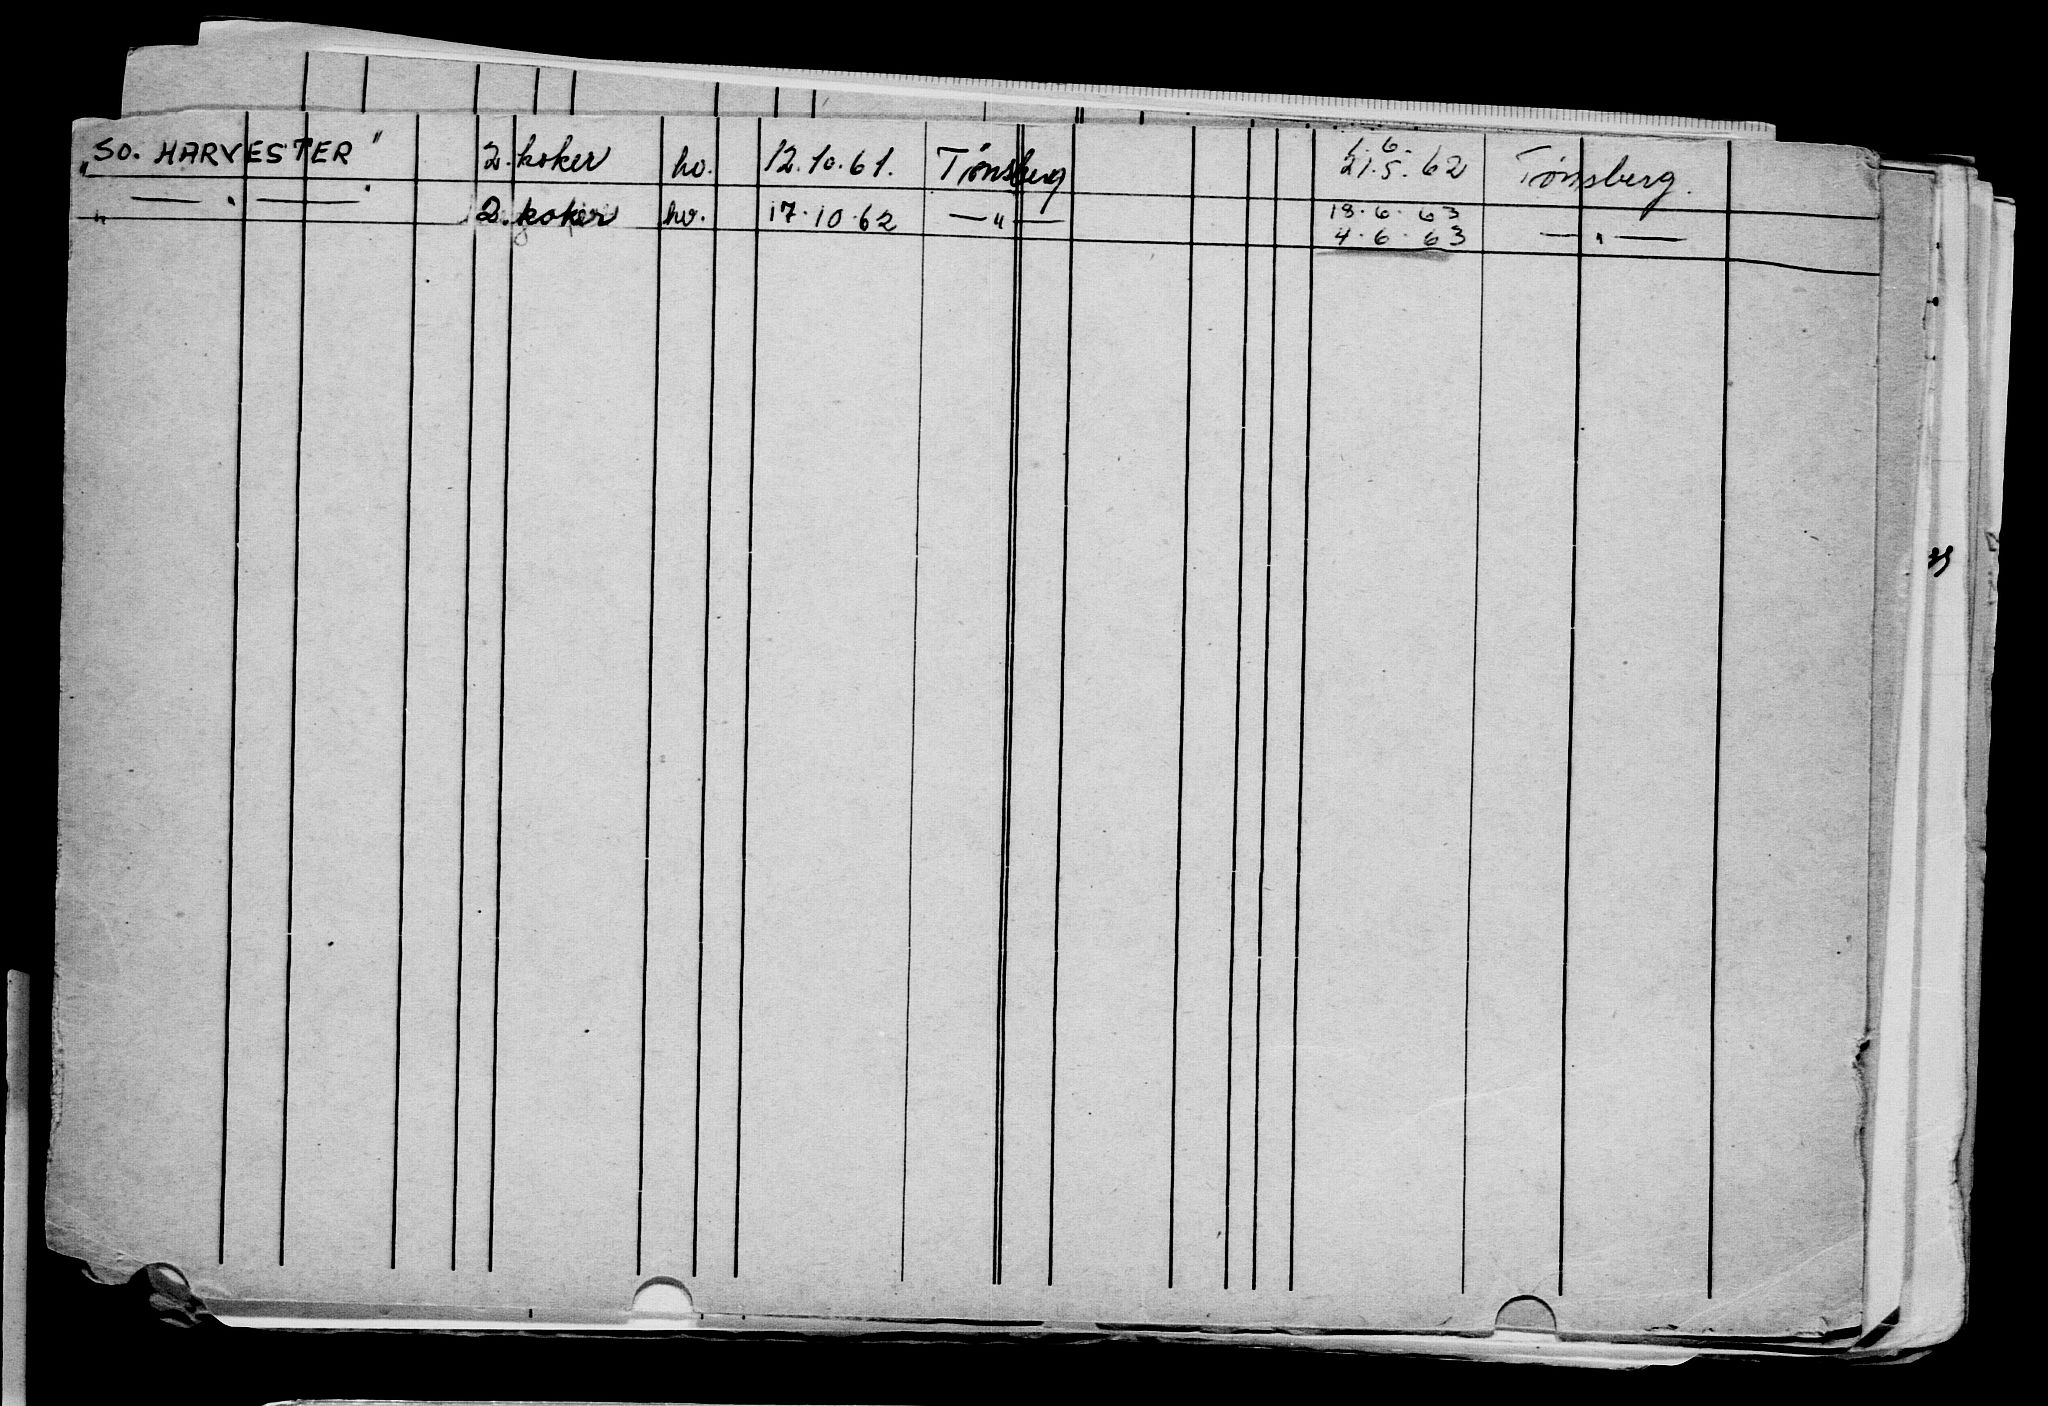 „SO. HARVESTER" 2. koker hv. 12.10.61. Tønsberg 1.6. 21.5.62 Tønsberg.
" — " — 2. koker hv. 17.10.62 — " — 18.6.63
4.6.63 — " —